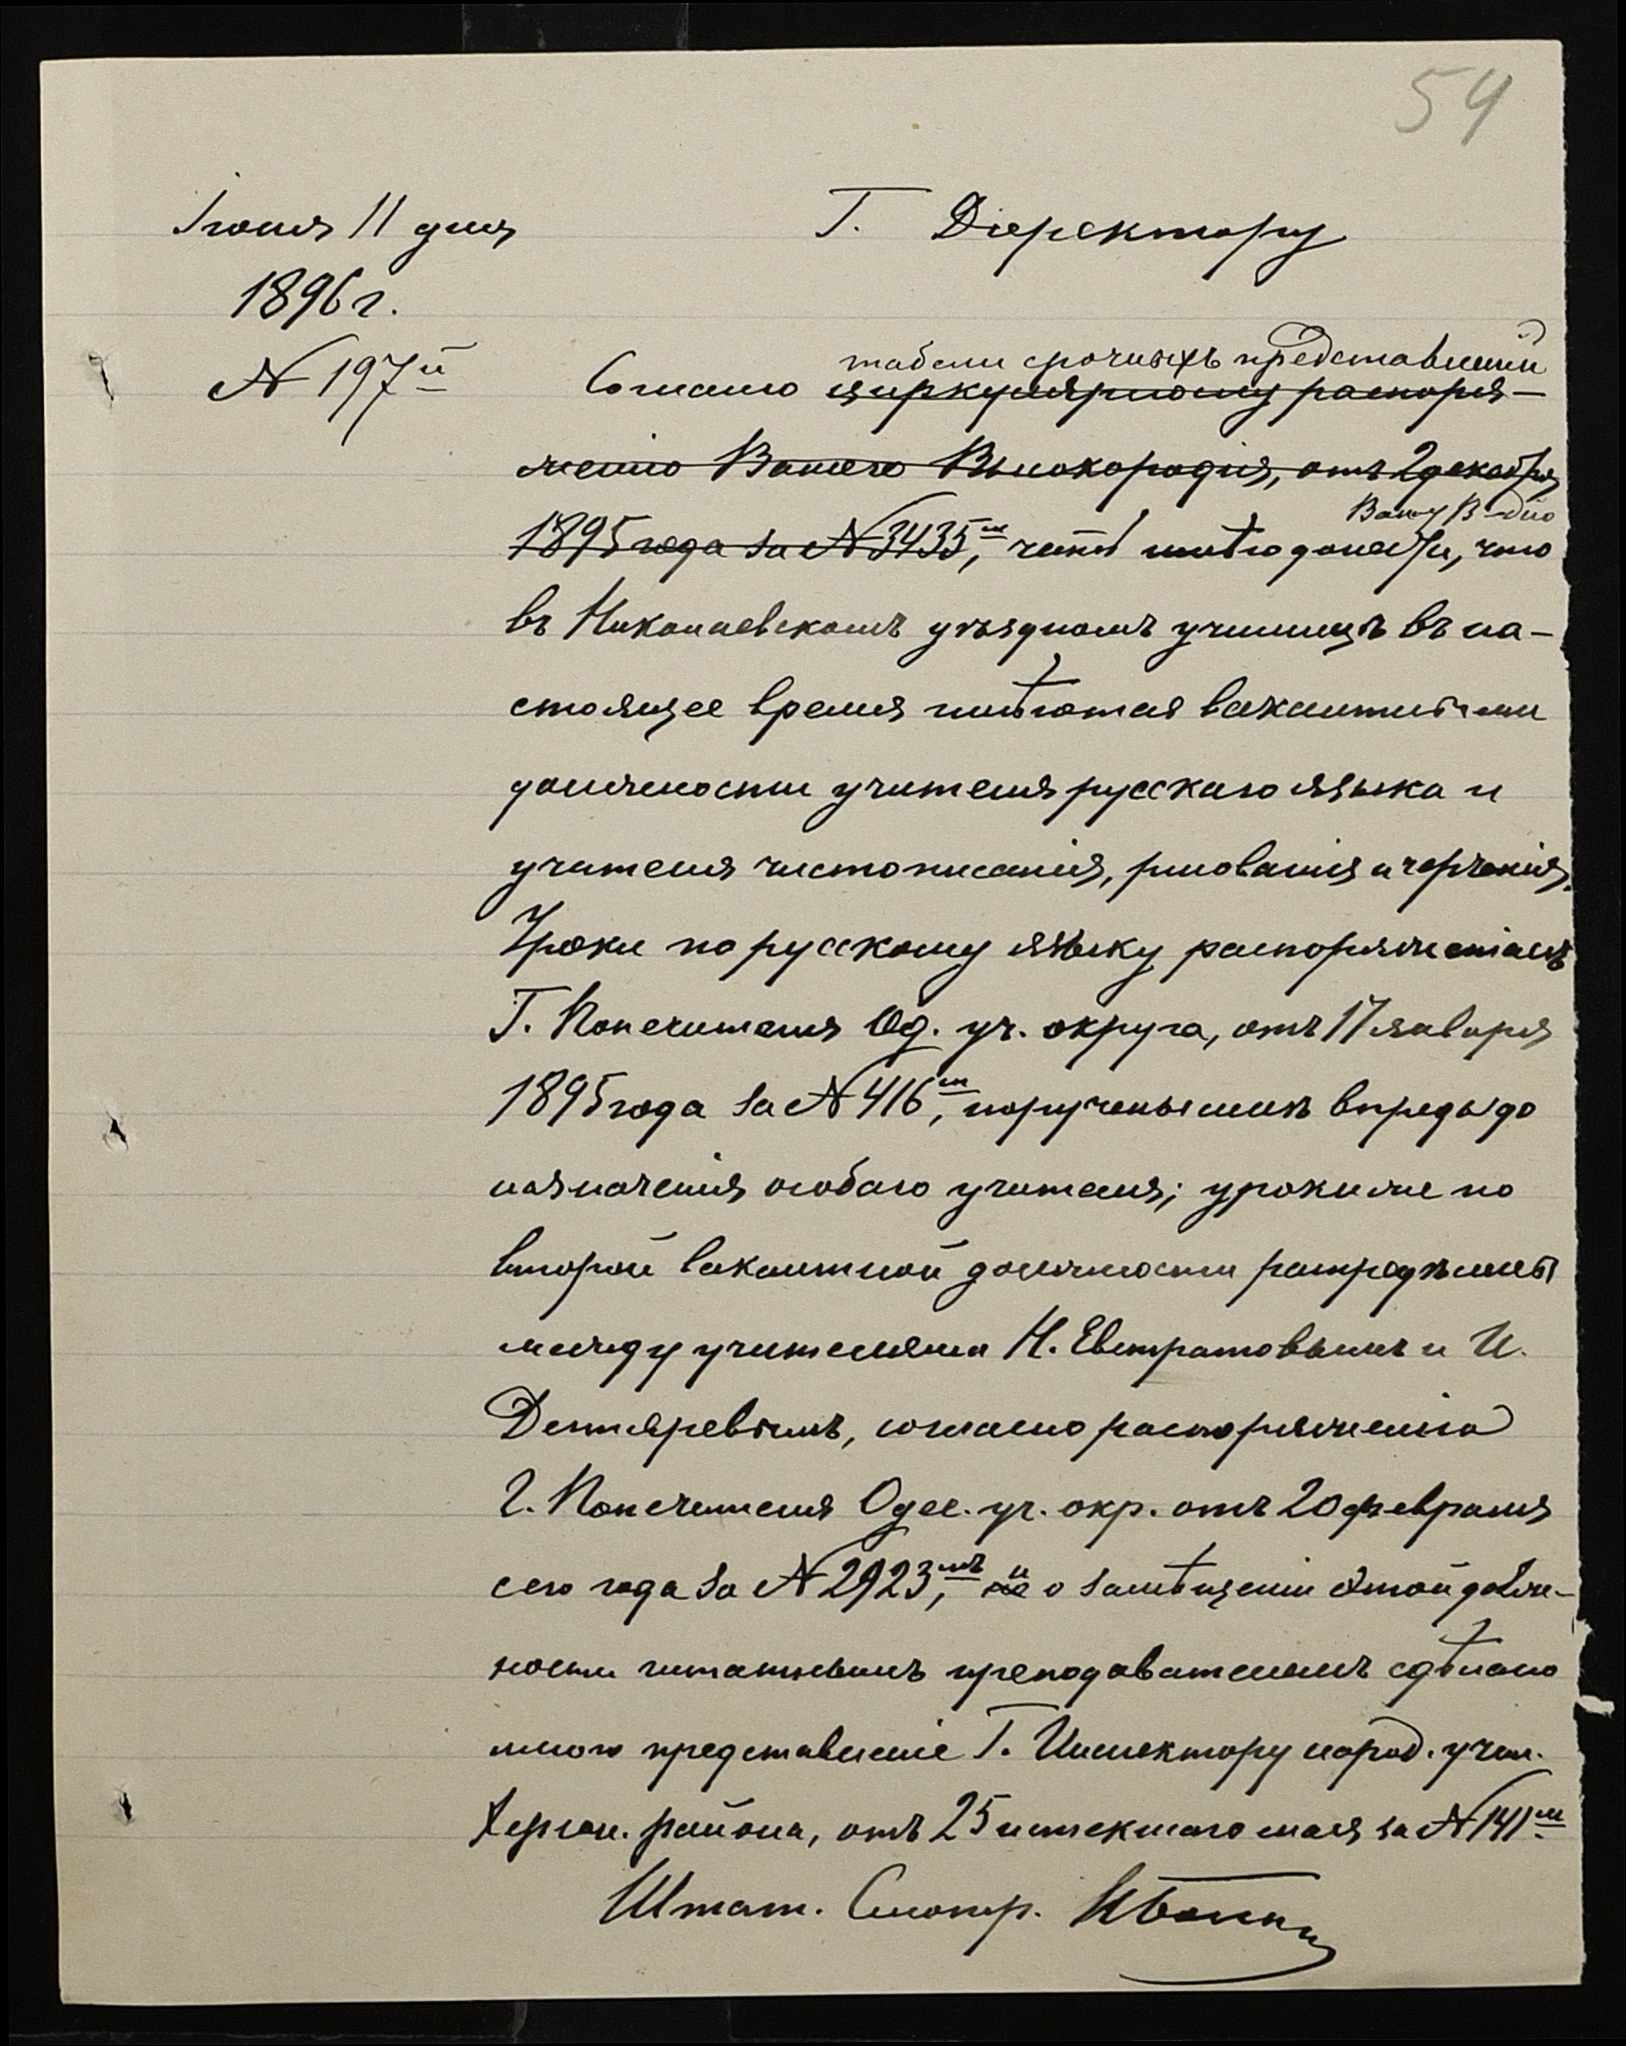 54
Іюня 11 дня
Г. Директору
1896 г.
№ 197й
табели срочныхъ представленій
Согласно циркулярному распоря-
женію Вашего Высокородія, отъ 2 декабря
Вашу В-дію
1895 года за № 3435м, честь имѣю донести, что
въ Николаевскомъ уѣздномъ училищѣ въ на-
стоящее время имѣются вакантными
должности учителя русскаго языка и
учителя чистописанія, рисованія и черченія.
Уроки по русскому языку распоряженіемъ
Г. Попечителя Од. уч. округа, отъ 17 января
1895 года за № 416м, поручены мнѣ впредь до
назначенія особаго учителя; уроки же по
второй вакантной должности распредѣлены
между учителями Н. Евстратовымъ и И.
Дегтяревымъ, согласно распоряженію
Г. Попечителя Одес. уч. окр. отъ 20 февраля
сего года за № 2923мъ, и о замѣщеніи этой долж-
ности штатнымъ преподавателемъ сдѣлано
мною представленіе Г. Инспектору народ. учил.
Херсон. района, отъ 25 истекшаго мая за № 141м
Штат. Смотр.